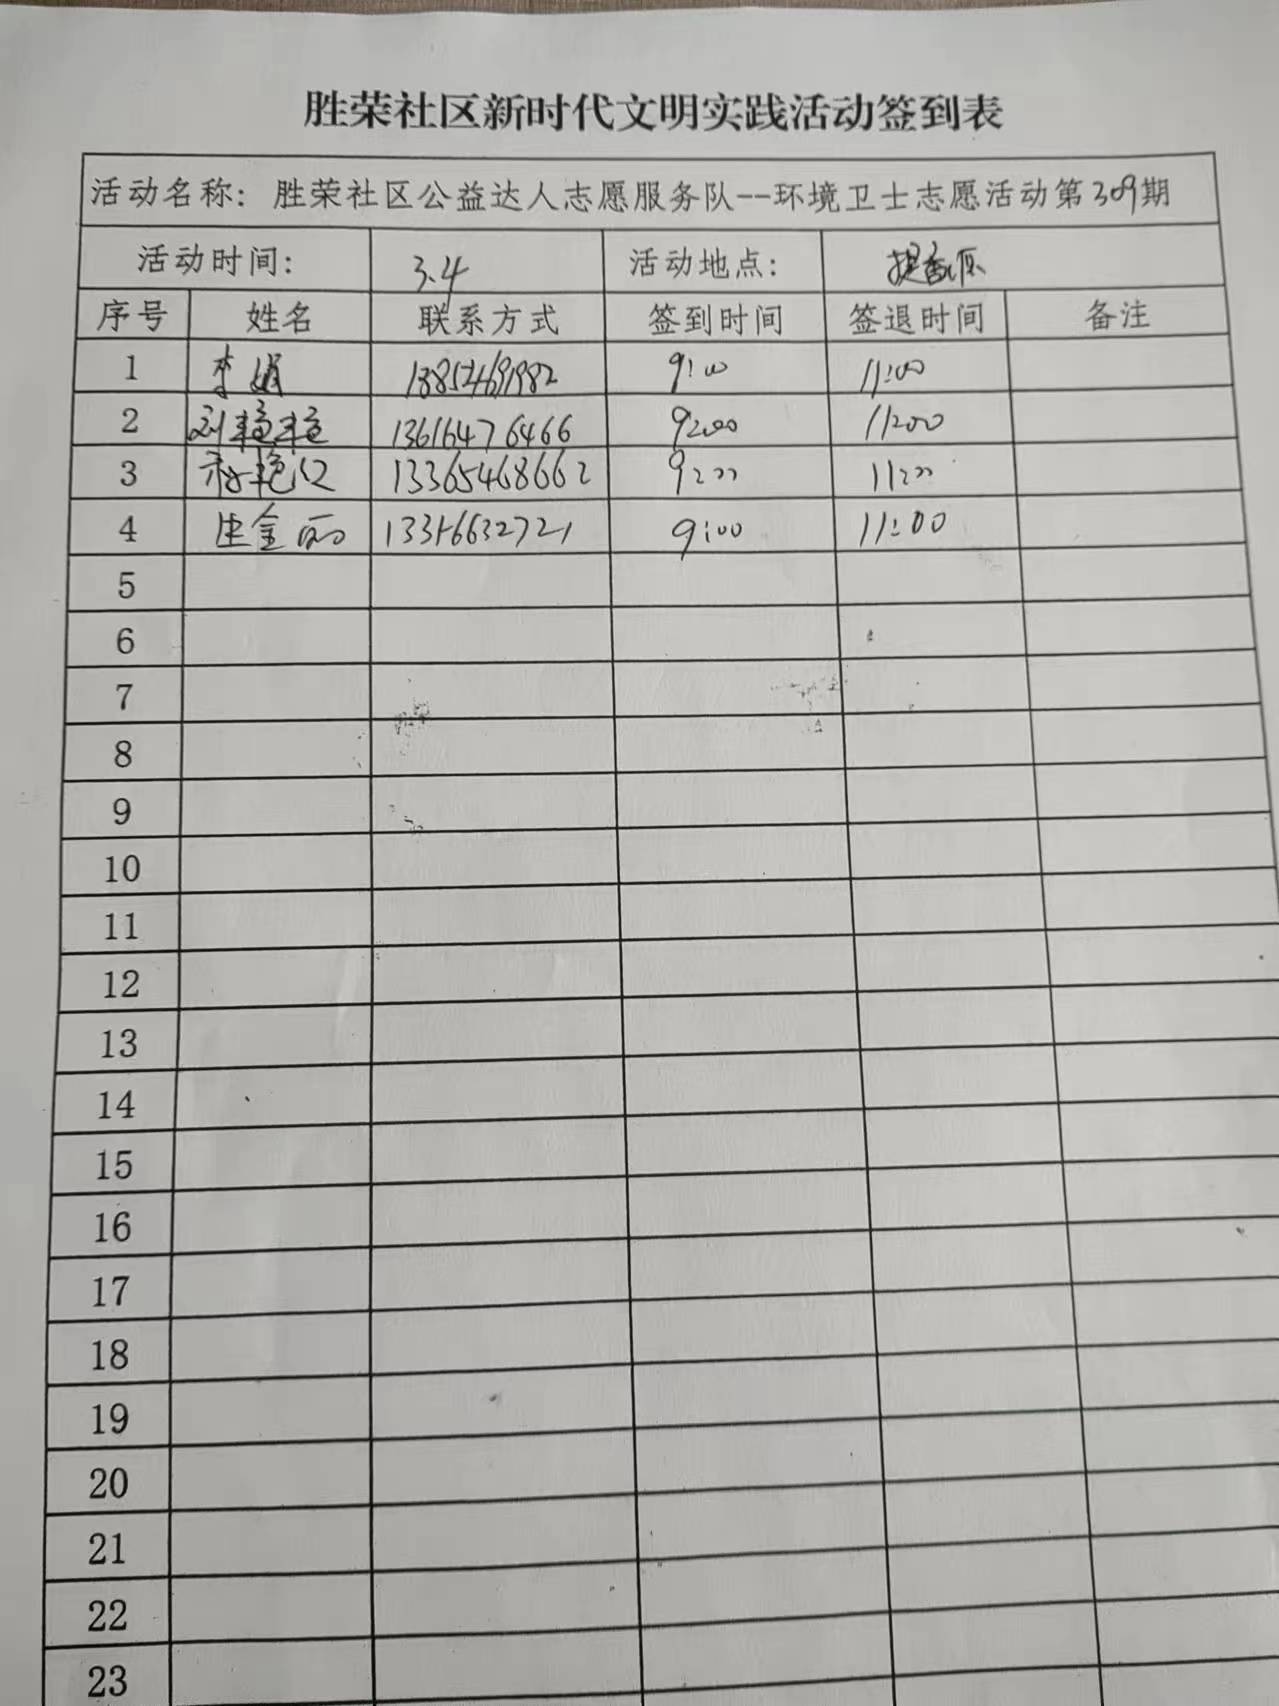 胜荣社区新时代文明实践活动签到表
活动名称：胜荣社区公益达人志愿服务队--环境卫士志愿活动第309期
活动时间： 3.4 活动地点：
序号 姓名 联系方式 签到时间 签退时间 备注
1 李娟 9:00 11:00
2 刘艳艳 13616476466 9:00 11:00
3 13365468662 9:00 11:00
4 9:00 11:00
5
6
7
8
9
10
11
12
13
14
15
16
17
18
19
20
21
22
23